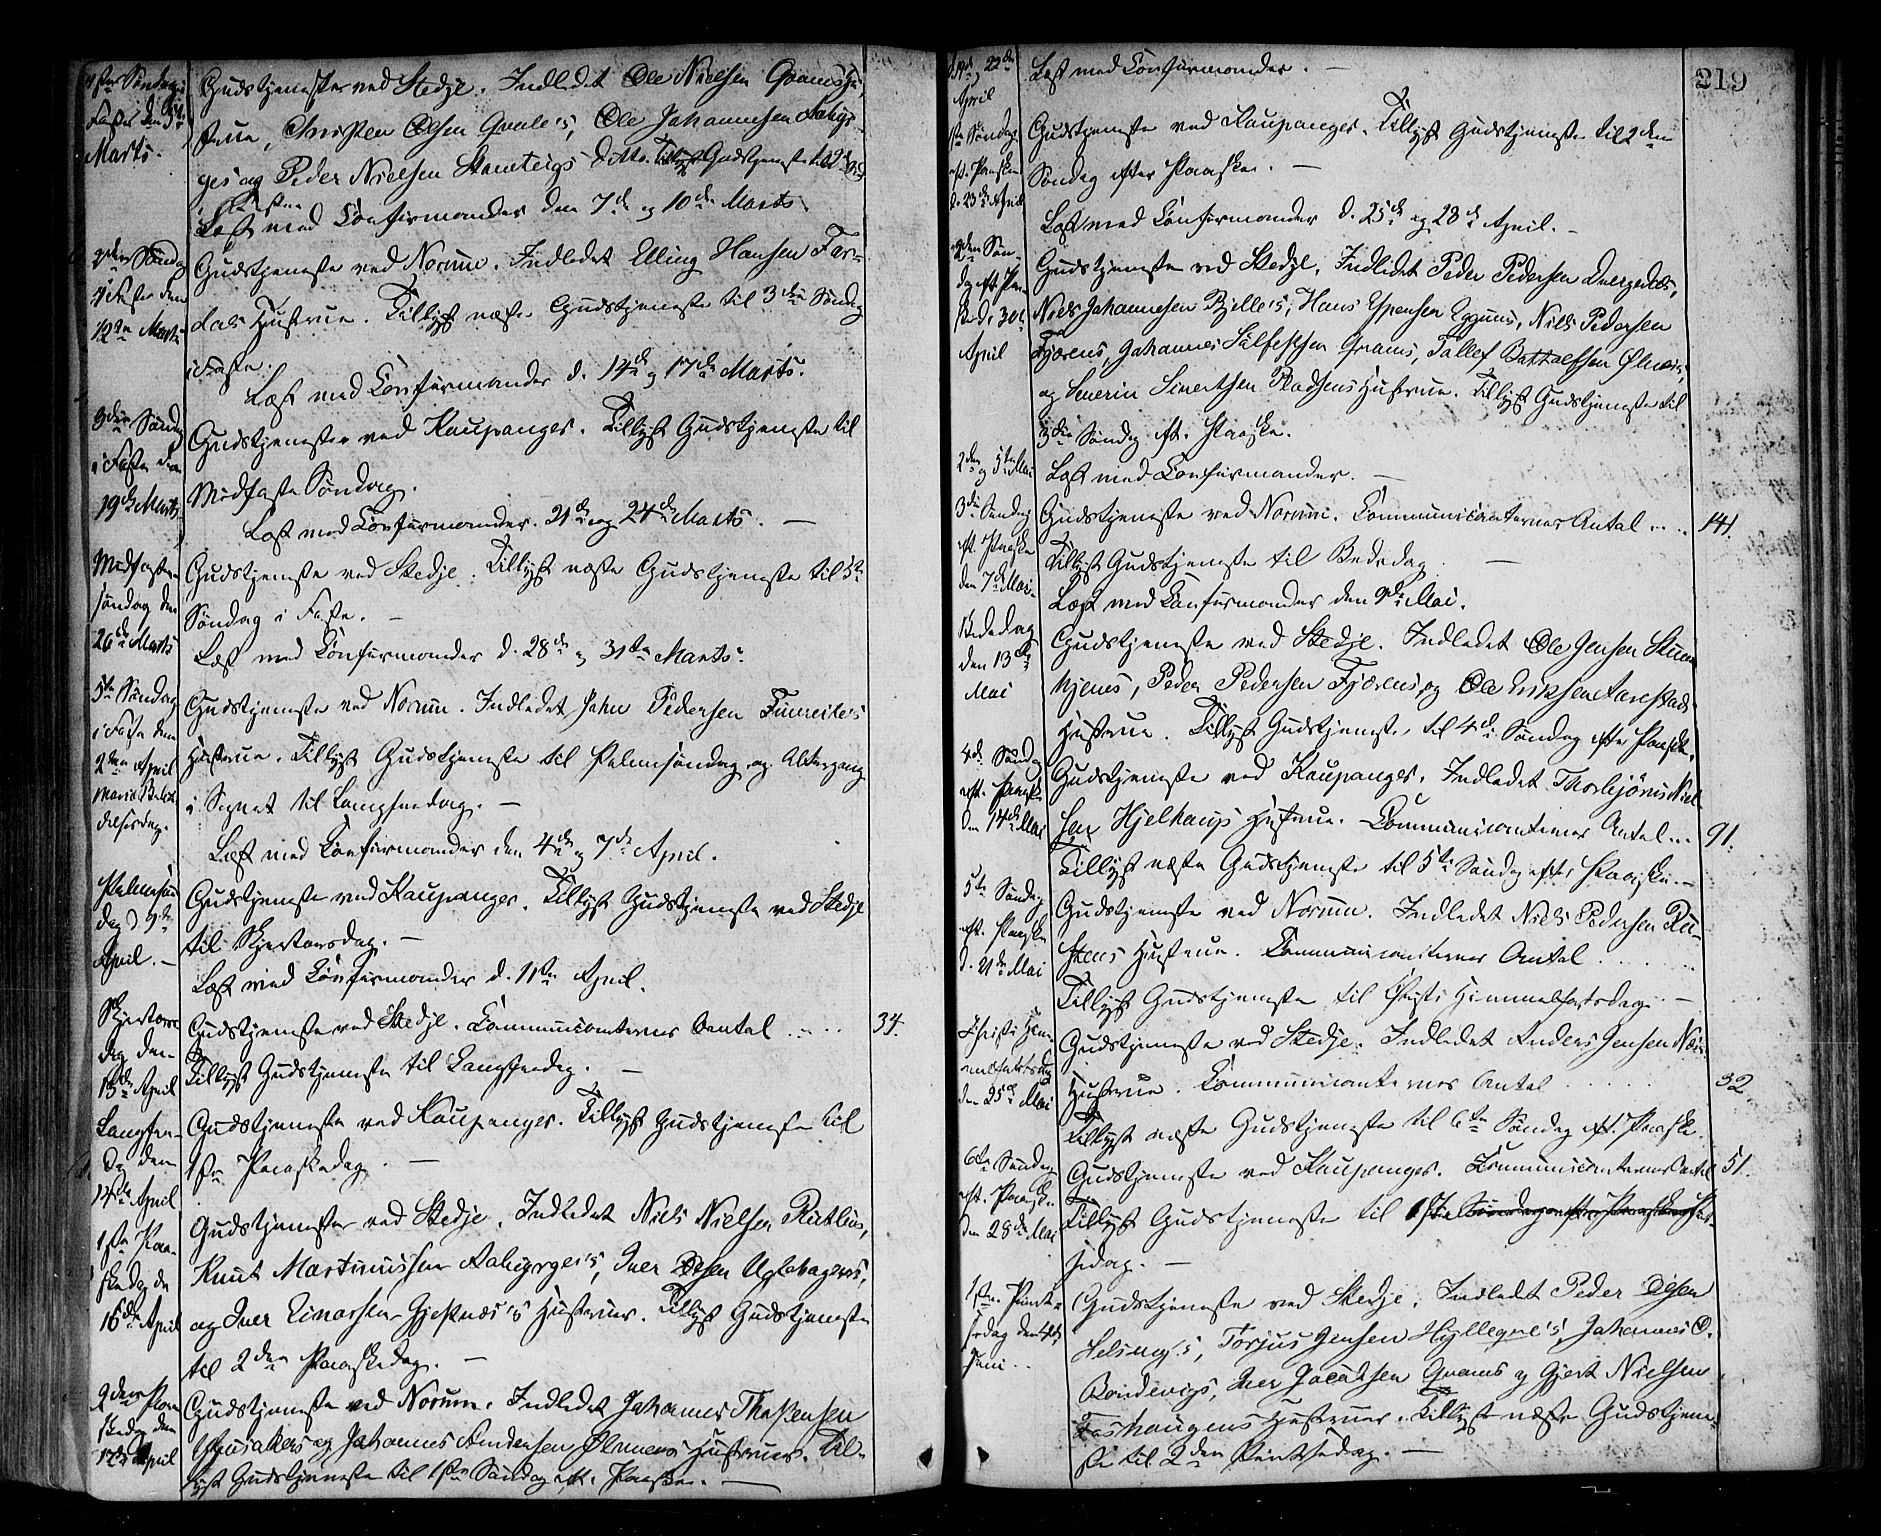 1ste Søndag i
Faste den 5te
Marts.
Gudstjeneste ved Stedje. Indledet Ole Nielsen Qvams Hu-
strue, Christen Olsen Qvale's, Ole Johannesen
ges og Peder Nielsen Steneteigs ditto. Tillyst Gudstjeneste til 2den Søndag
i Faste
Læst med Confirmander den 7de og 10de Marts.
2den Søndag
i Faste den
12te Marts
Gudstjeneste ved Norum. Indledet Elling Hansen Far-
dals Hustrue. Tillyst næste Gudstjeneste til 3die Søndag
i Faste.
Læst med Confirmander d. 14de og 17de Marts.
3die Søndag
i Faste den
19de Marts
Gudstjeneste ved Kaupanger. Tillyst Gudstjeneste til
Midfaste Søndag.
Læst med Confirmander 21de og 24de Marts. —
Midfaste-
søndag den
26de Marts
Gudstjeneste ved Stedje. Tillyst næste Gudstjeneste til 5te
Søndag i Faste. —
Læst med Confirmander d. 28de og 31te Marts.
5te Søndag
i Faste den
2den April
Mariæ Bebu-
delsesdag.
Gudstjeneste ved Norum. Indledet John Pedersen Fimreite's
Hustrue. Tillyst Gudstjeneste til Palmesøndag og Altergang
i Sognet til Langfredag. —
Læst med Confirmander den 4de og 7de April.
Palmesøn-
dag d. 9de
April. —
Gudstjeneste ved Kaupanger. Tillyst Gudstjeneste ved Stedje
til Skjertorsdag. —
Læst med Confirmander d. 11te April.
Skjertors-
dag den
13de April
Gudstjeneste ved Stedje. Communicanternes Antal .... 34.
Tillyst Gudstjeneste til Langfredag. —
Langfre-
dag den
14de April
Gudstjeneste ved Kaupanger. Tillyst Gudstjeneste til
1ste Paaskedag. —
1ste Paa-
skedag den
16de April
Gudstjeneste ved Stedje. Indledet Niels Nielsen Rutlins,
Knut Martinussen, Iver Olsen
og Iver Einarsen Gjestnæs's Hustruer. Tillyst Gudstjeneste
til 2den Paaskedag. —
2den Paa-
skedag den
17de April
Gudstjeneste ved Norum. Indledet Johannes
og Johannes Andersen Ølmens Hustruer. Til-
lyst Gudstjeneste til 1ste Søndag eft. Paaske. —
219
19de og 22de
April
Læst med Confirmander. —
1ste Søndag
eft. Paaske
d. 23de April
Gudstjeneste ved Kaupanger. Tillyst Gudstjeneste til 2den
Søndag efter Paaske. —
Læst med Confirmander d. 25de og 28de April. —
2den Søn-
dag eft. Paa-
ske d. 30te
April
Gudstjeneste ved Stedje. Indledet Peder Pedersen Dvergedals,
Niels Johannesen Bjelle's, Hans Espensen Eggums, Niels Pedersen
Fjærens, Johannes Sålfestsen Qvams, Tollef
og Severin Sivertsen Pladsens Hustruer. Tillyst Gudstjeneste til
3die Søndag eft. Paaske.
2den og 5te Mai
Læst med Confirmander. —
3die Søndag
eft. Paaske
den 7de Mai.
Gudstjeneste ved Norum. Communicanternes Antal .... 141.
Tillyst Gudstjeneste til Bededag. —
Læst med Confirmander den 9de Mai.
Bededag
den 13de
Mai
Gudstjeneste ved Stedje. Indledet Ole Jensen
hjenes, Peder Pedersen Fjærens, og Ole Eriksen Aarestads
Hustrue. Tillyst Gudstjeneste til 4de Søndag efter Paaske.
4de Søndag
eft. Paaske
den 14de Mai
Gudstjeneste ved Kaupanger. Indledet Thorbjørn Niel-
sen Hjelhaugs Hustrue. Communicanternes Antal ... 91.
Tillyst næste Gudstjeneste til 5te Søndag efter Paaske. —
5te Søndag
eft. Paaske
d. 21de Mai
Gudstjeneste ved Norum. Indledet Niels Pedersen
Hustrue. Communicanternes Antal ....
Tillyst Gudstjeneste til Christi Himmelfartsdag. —
Christi Him-
melfartsdag
den 25de Mai
Gudstjeneste ved Stedje. Indledet Anders Jensen
Hustrue. Communicanternes Antal ..... 32
Tillyst næste Gudstjeneste til 6te Søndag eft. Paaske.
6te Søndag
eft. Paaske
den 28de Mai
Gudstjeneste ved Kaupanger. Communicanternes Antal 51.
Tillyst Gudstjeneste til 1ste Pint-
sedag. —
1ste Pint-
sedag den 4de
Juni ..
Gudstjeneste ved Stedje. Indledet Peder Olsen
Torjus Jensen Johannes O.
Bondevigs, Iver Jacobsen Qvams og Gjert Nielsen
Foshaugens Hustruer. Tillyst næste Gudstjene-
ste til 2den Pintsedag. —